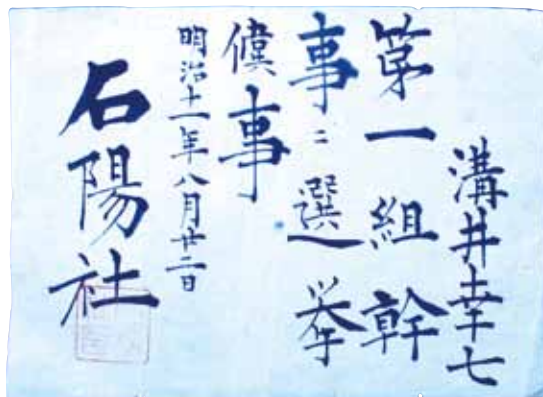 溝井幸七
第一組幹
事ニ選挙
候事
明治十一年八月廿二日
石陽社